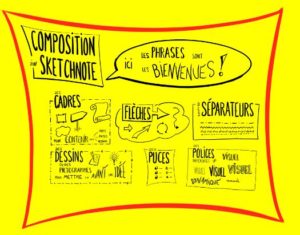 COMPOSITION
d'un SKETCHNOTE
ici LES PHRASES SONT
LES BIENVENUES !
DES CADRES
POUR CONTOUR
DES FLÈCHES
DES SÉPARATEURS
DES DESSINS
DES PICTOGRAMMES
POUR METTRE EN AVANT UNE IDÉE
DES PUCES
DES POLICES
VISUEL
VISUEL VISUEL VISUAGE
DYNAMIQUE